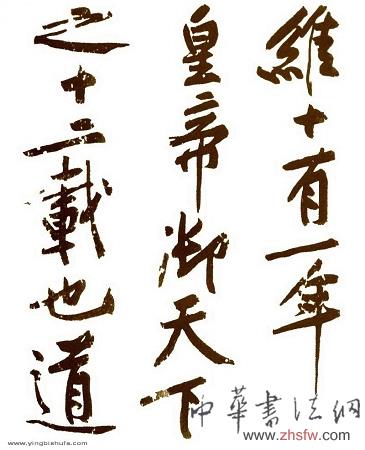 維十有一年
皇帝御天下
之十二載也道
中華書法網
www.zhsfw.com
www.yingbishufa.com